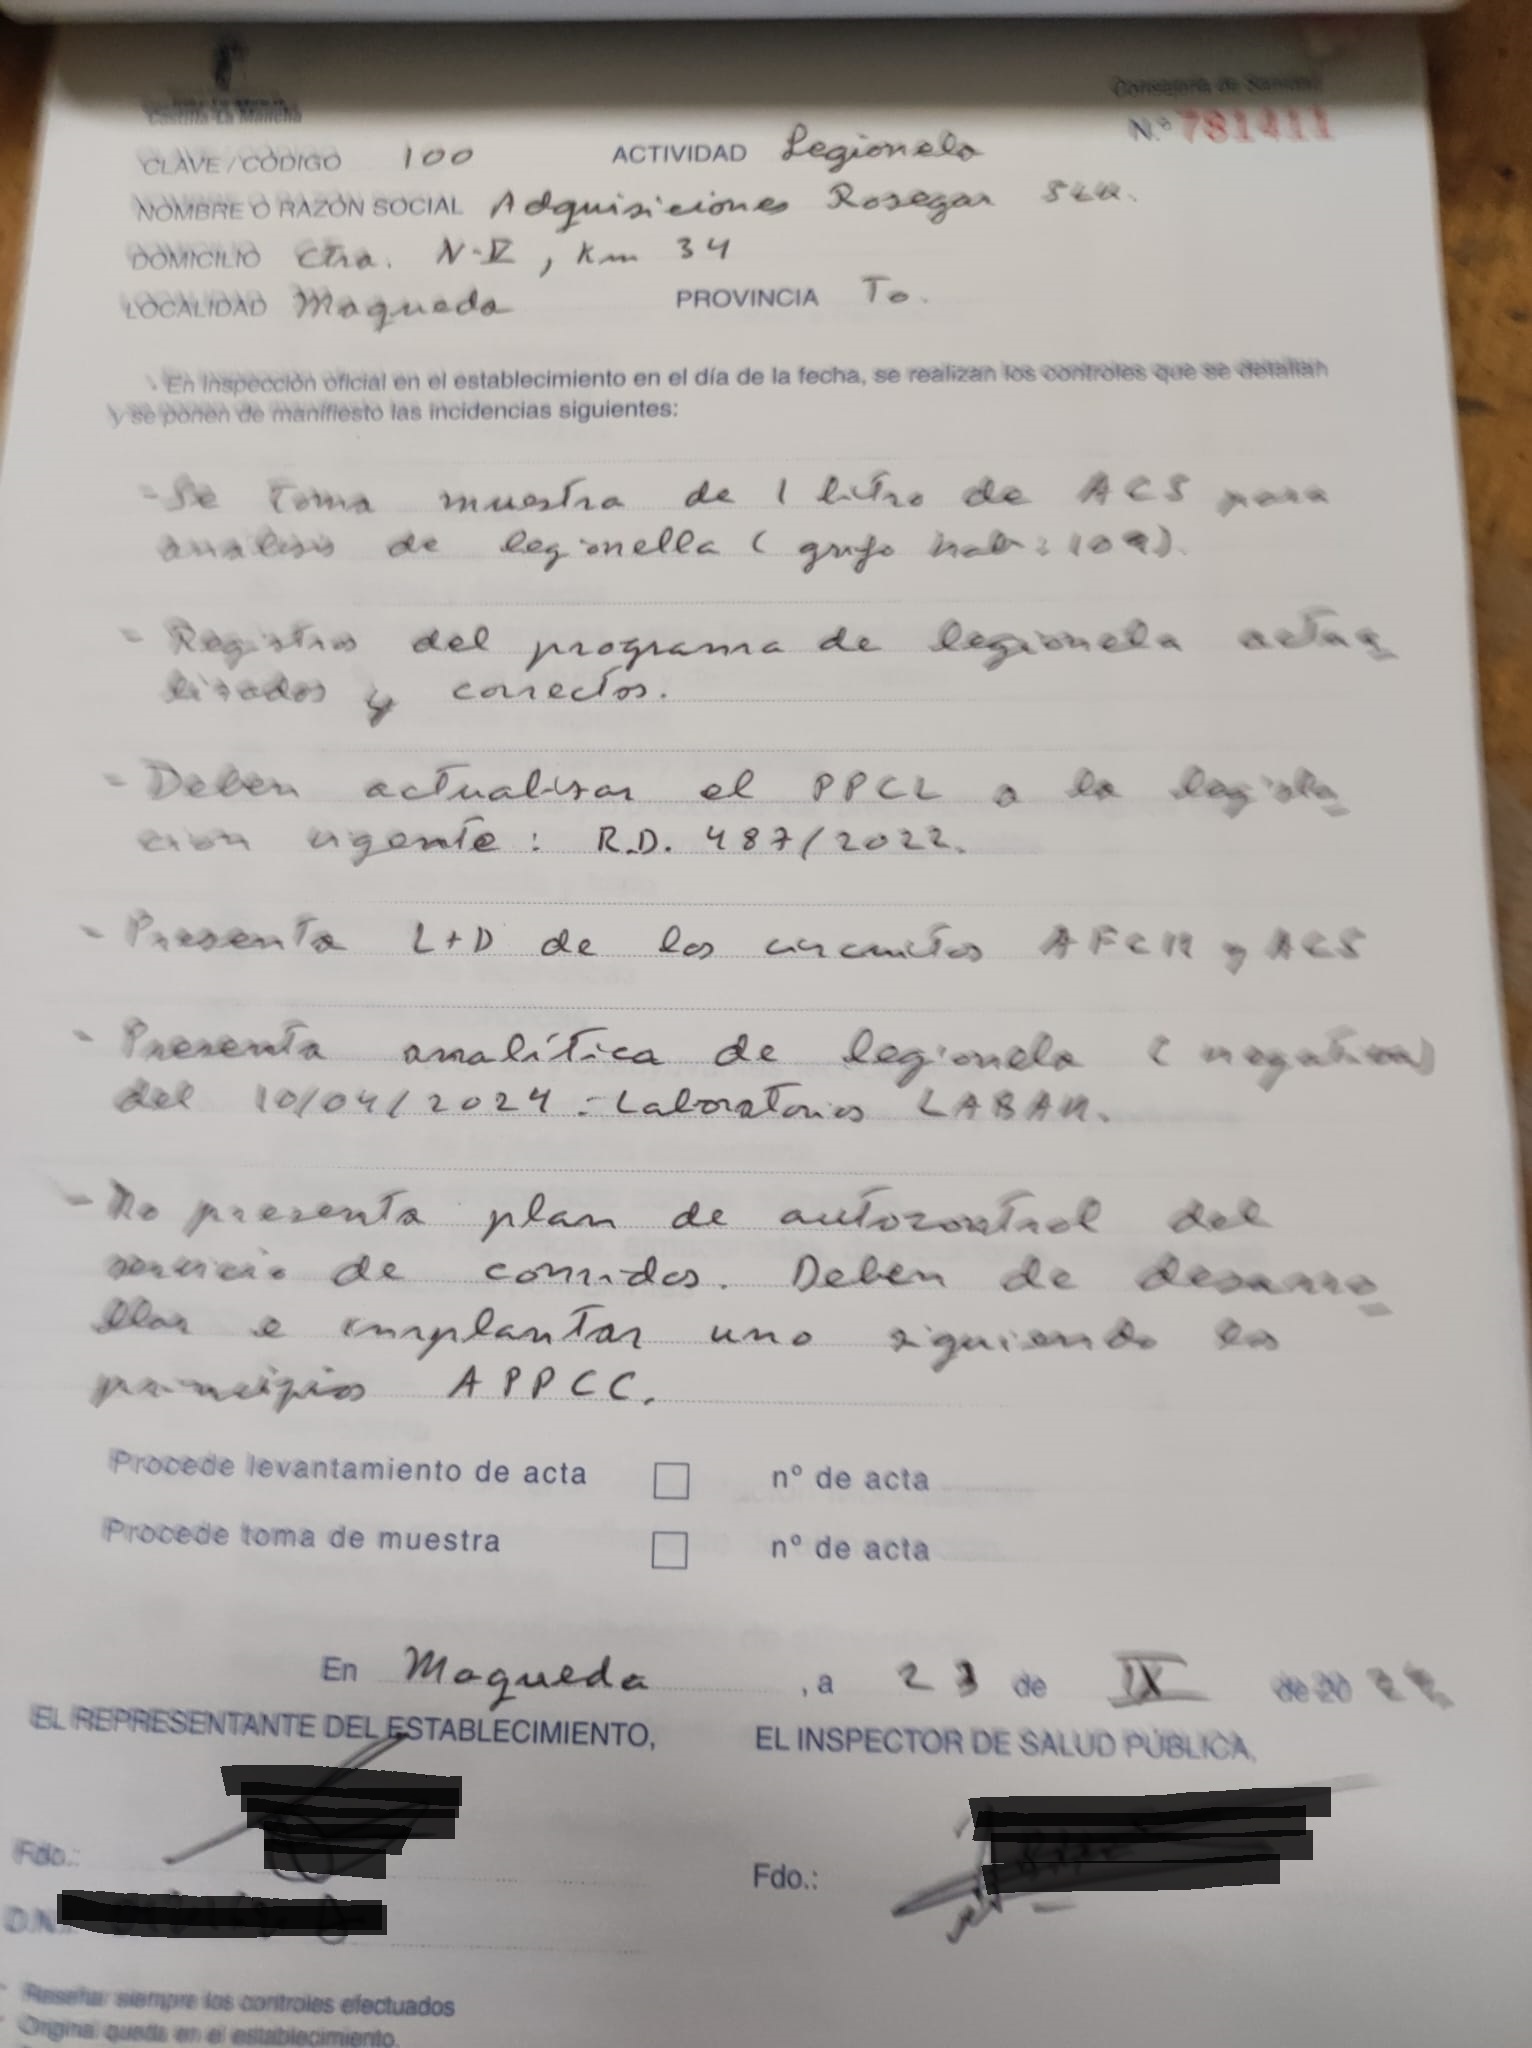 Castilla-La Mancha
Consejería de Sanidad
N.º 781411
CLAVE / CÓDIGO 100 ACTIVIDAD Legionela
NOMBRE O RAZÓN SOCIAL Adquisiciones Rosegar SLU.
DOMICILIO Ctra. N-V, Km 34
LOCALIDAD Maqueda PROVINCIA To.
En Inspección oficial en el establecimiento en el día de la fecha, se realizan los controles que se detallan
y se ponen de manifiesto las incidencias siguientes:
- Se toma muestra de 1 litro de ACS para
analisis de legionella ( grifo hab: 109).
- Registros del programa de legionela actua
lizados y correctos.
- Deben actualizar el PPCL a la legisla
cion vigente: R.D. 487/2022.
- Presenta L+D de los circuitos AFCH y ACS
- Presenta analítica de legionela (negativa)
del 10/04/2024 - Laboratorios LABAM.
- No presenta plan de autocontrol del
servicio de comidas. Deben de desarro
llar e implantar uno siguiendo los
principios APPCC.
Procede levantamiento de acta nº de acta
Procede toma de muestra nº de acta
En Maqueda , a 23 de IX de 20
EL REPRESENTANTE DEL ESTABLECIMIENTO, EL INSPECTOR DE SALUD PÚBLICA,
Fdo.: Fdo.:
D.N.
Reseñar siempre los controles efectuados
Original queda en el establecimiento.